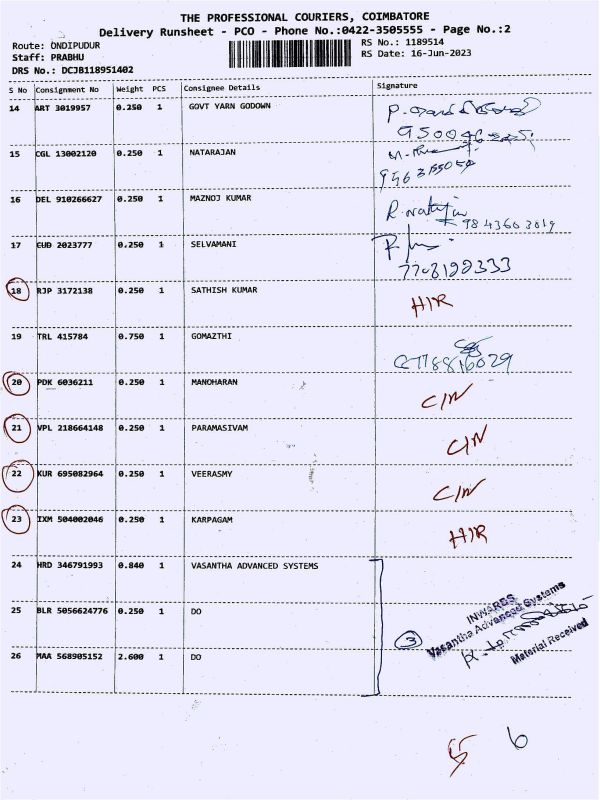 THE PROFESSIONAL COURIERS, COIMBATORE
Delivery Runsheet - PCO - Phone No.:0422-3505555 - Page No.:2
Route: ONDIPUDUR RS No.: 1189514
Staff: PRABHU RS Date: 16-Jun-2023
DRS No.: DCJB118951402
S No Consignment No Weight PCS Consignee Details Signature
14 ART 3019957 0.250 1 GOVT YARN GODOWN
15 CGL 13002120 0.250 1 NATARAJAN
16 DEL 910266627 0.250 1 MAZNOJ KUMAR
9843603019
17 EUD 2023777 0.250 1 SELVAMANI
18 RJP 3172138 0.250 1 SATHISH KUMAR H/R
19 TRL 415784 0.750 1 GOMAZTHI
20 PDK 6036211 0.250 1 MANOHARAN C/N
21 VPL 218664148 0.250 1 PARAMASIVAM C/N
22 KUR 695082964 0.250 1 VEERASMY C/N
23 IXM 504002046 0.250 1 KARPAGAM H/R
24 HRD 346791993 0.840 1 VASANTHA ADVANCED SYSTEMS
25 BLR 5056624776 0.250 1 DO
26 MAA 568905152 2.600 1 DO
3
INWARDS
Vasantha Advanced Systems
Material Received
6